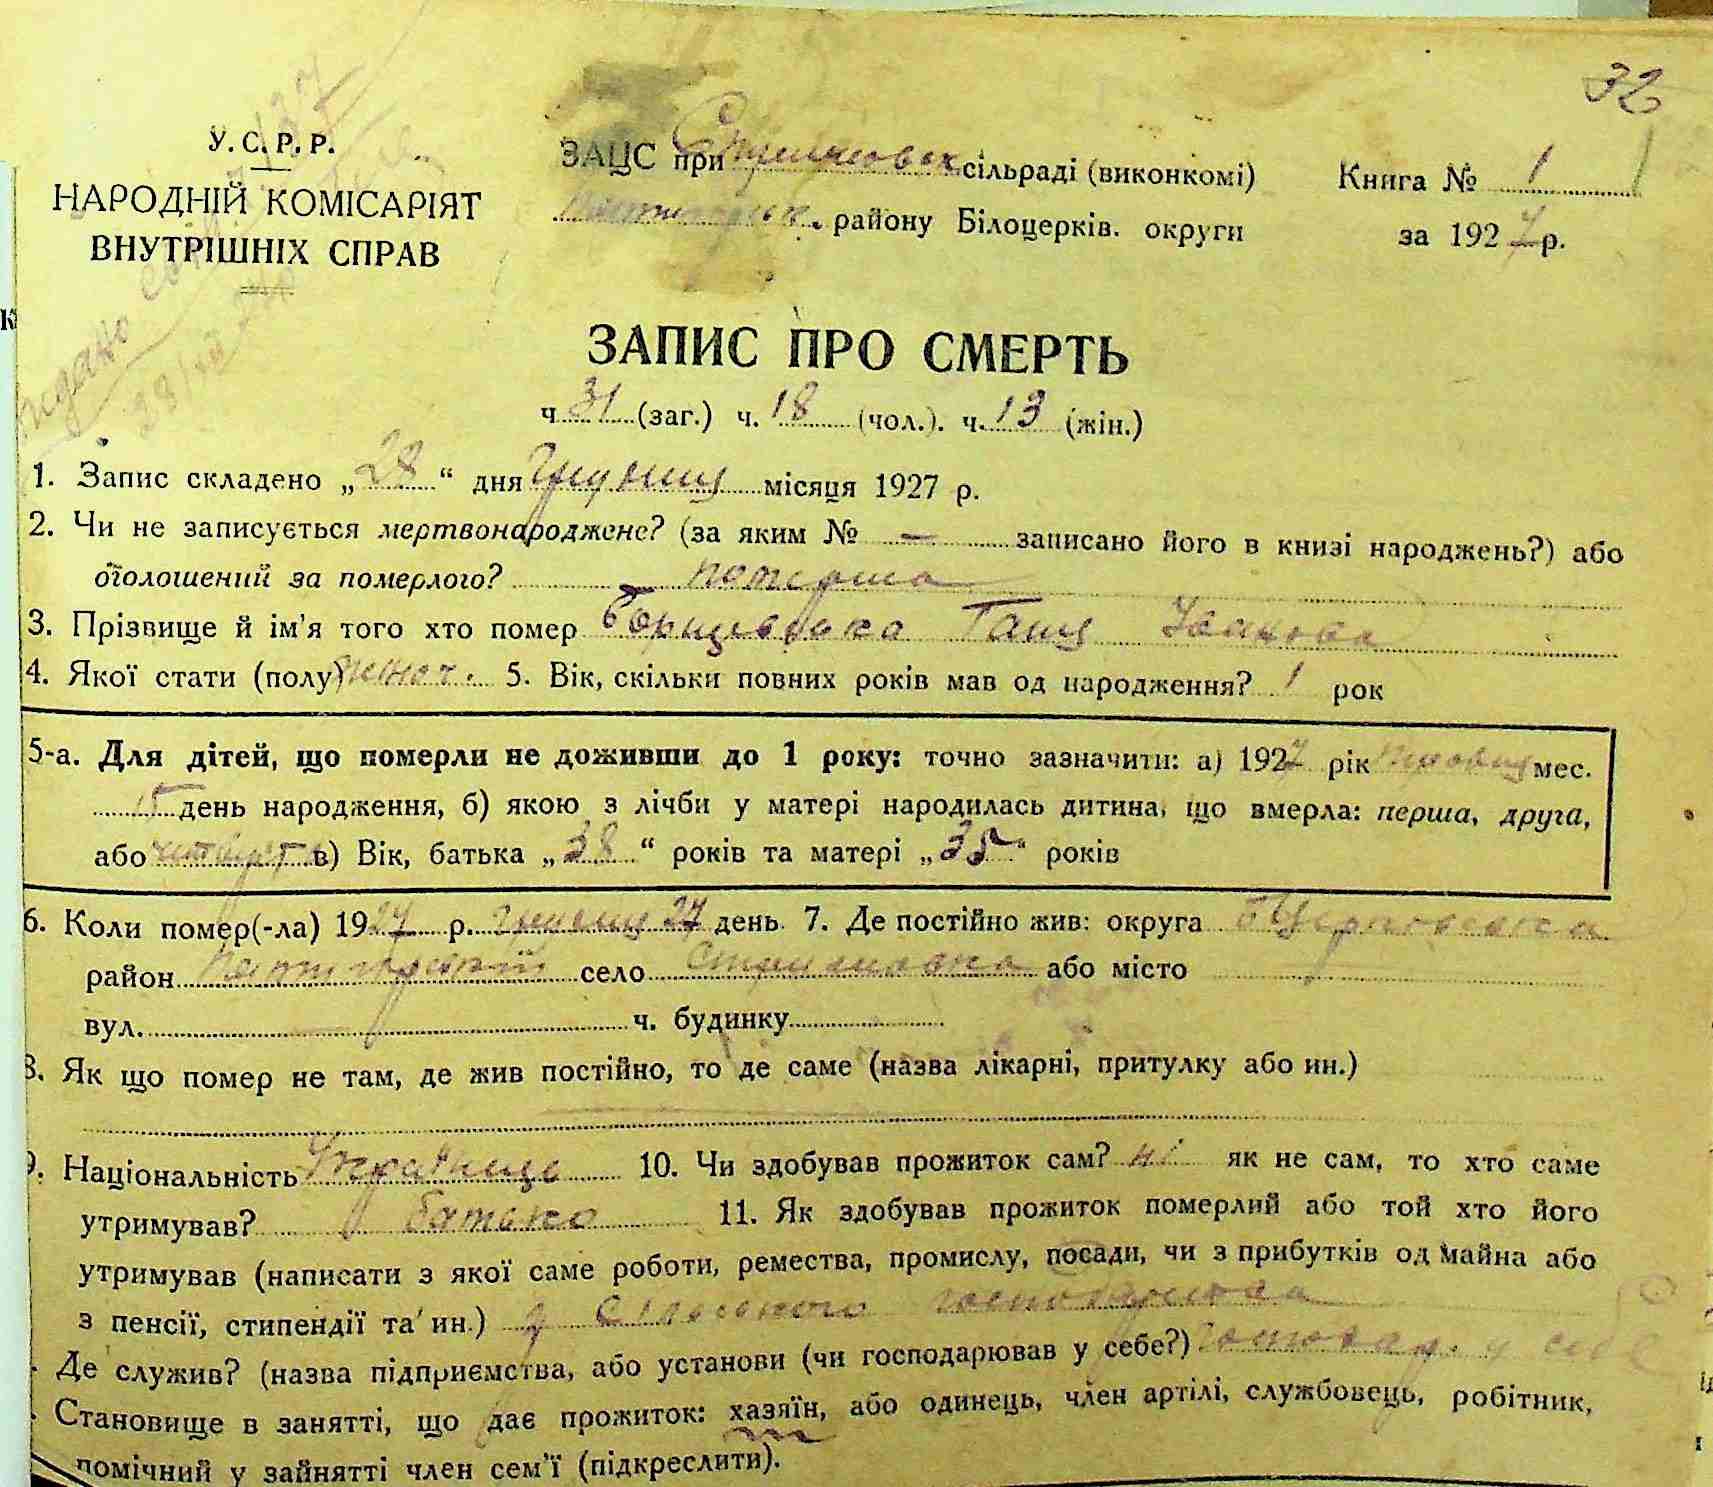 32
У. С. Р. Р.
НАРОДНІЙ КОМІСАРІЯТ
ВНУТРІШНІХ СПРАВ
ЗАЦС при сільраді (виконкомі)
району Білоцерків. округи
Книга № 1
за 1927 р.
ЗАПИС ПРО СМЕРТЬ
ч 31 (заг.) ч. 18 (чол.). ч. 13 (жін.)
1. Запис складено „28“ дня Грудня місяця 1927 р.
2. Чи не записується мертвонароджене? (за яким № — записано його в книзі народжень?) або
оголошений за померлого? померла
3. Прізвище й ім'я того хто помер Ганя Іванова
4. Якої стати (полу) жіноч. 5. Вік, скільки повних років мав од народження? 1 рок
5-а. Для дітей, що померли не доживши до 1 року: точно зазначити: а) 1927 рік мес.
15 день народження, б) якою з лічби у матері народилась дитина, що вмерла: перша, друга,
або четверта в) Вік, батька „38“ років та матері „35“ років
6. Коли помер(-ла) 1927 р. грудня 27 день 7. Де постійно жив: округа Б Церківська
район село або місто
вул. ч. будинку
8. Як що помер не там, де жив постійно, то де саме (назва лікарні, притулку або ин.)
9. Національність 10. Чи здобував прожиток сам? ні як не сам, то хто саме
утримував? батько 11. Як здобував прожиток померлий або той хто його
утримував (написати з якої саме роботи, ремества, промислу, посади, чи з прибутків од майна або
з пенсії, стипендії та ин.) з сільського господарства
Де служив? (назва підприємства, або установи (чи господарював у себе?) господар. у себе
Становище в занятті, що дає прожиток: хазяїн, або одинець, член артілі, службовець, робітник,
помічний у зайнятті член сем'ї (підкреслити).